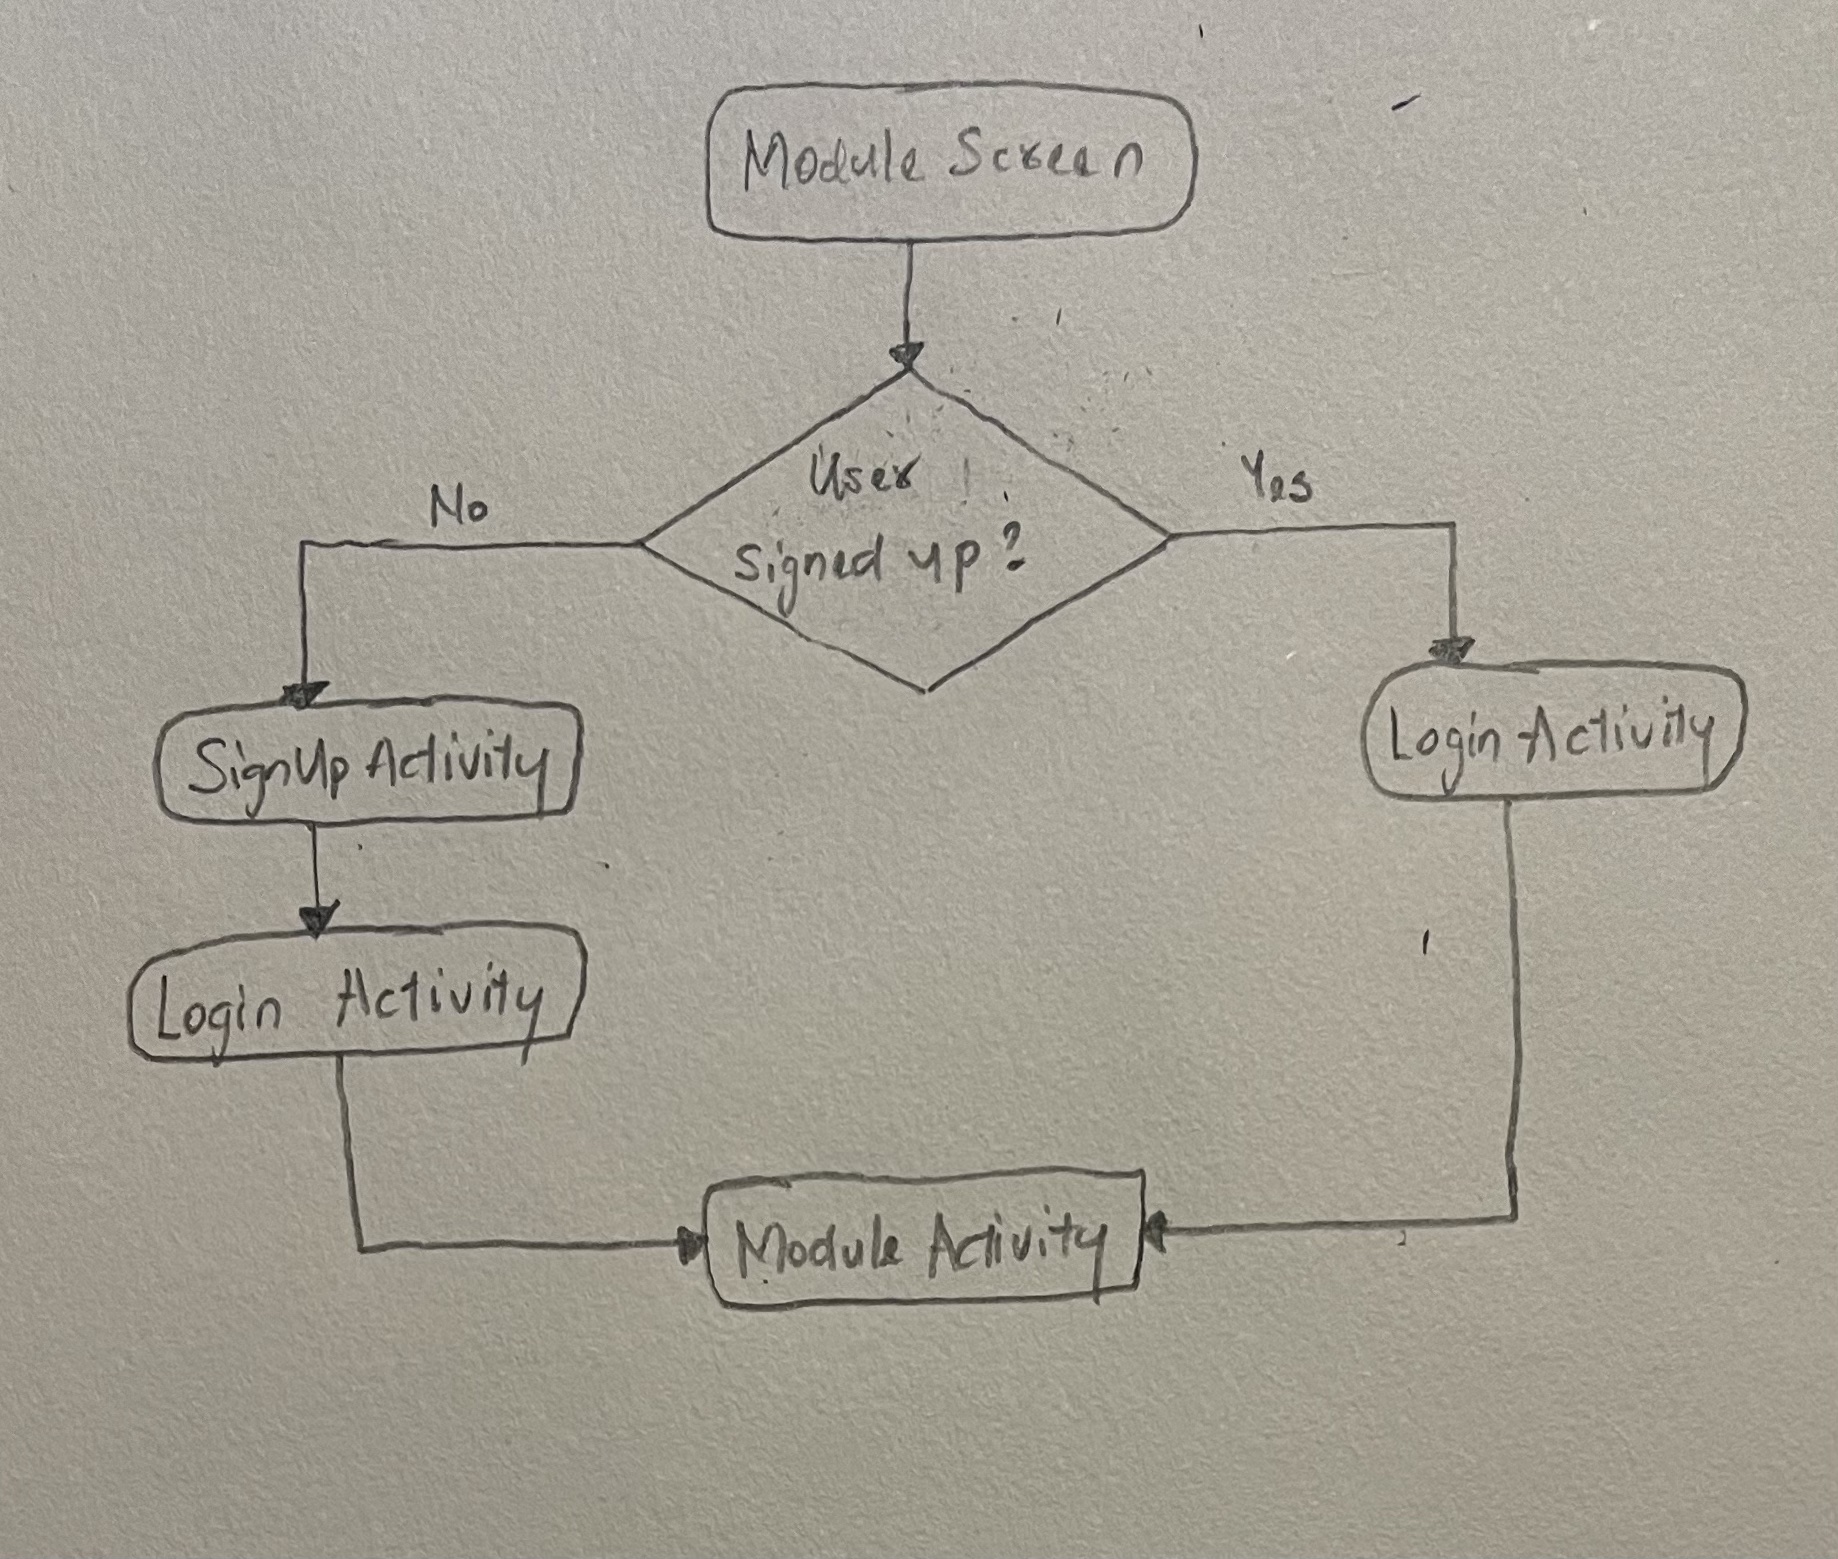 Module Screen
User
signed up?
No
Yes
SignUp Activity
Login Activity
Login Activity
Module Activity